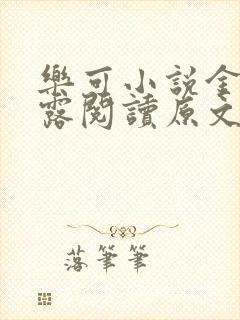 樂可小說金
露閱讀原文
落筆筆